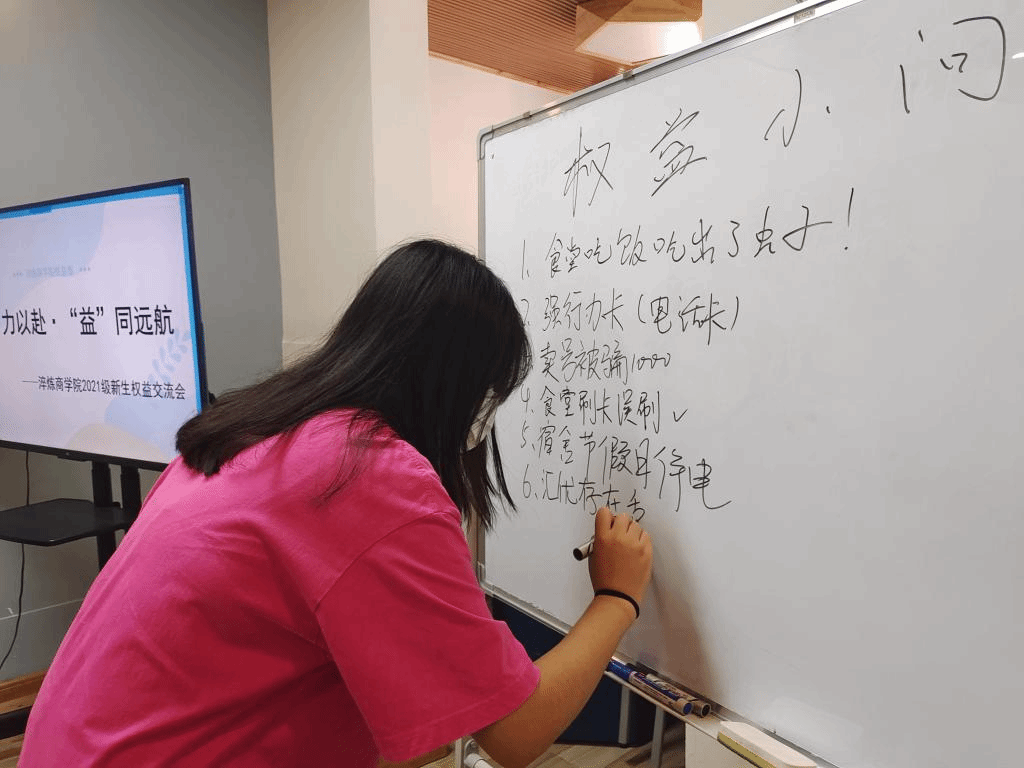 力以赴·“益”同远航
——淬炼商学院2021级新生权益交流会
权益小问
1、食堂吃饭吃出了虫子！
2、强行办卡（电话卡）
卖号被骗1000
4、食堂刷卡误刷✓
5、宿舍节假日停电
6、汇优存在